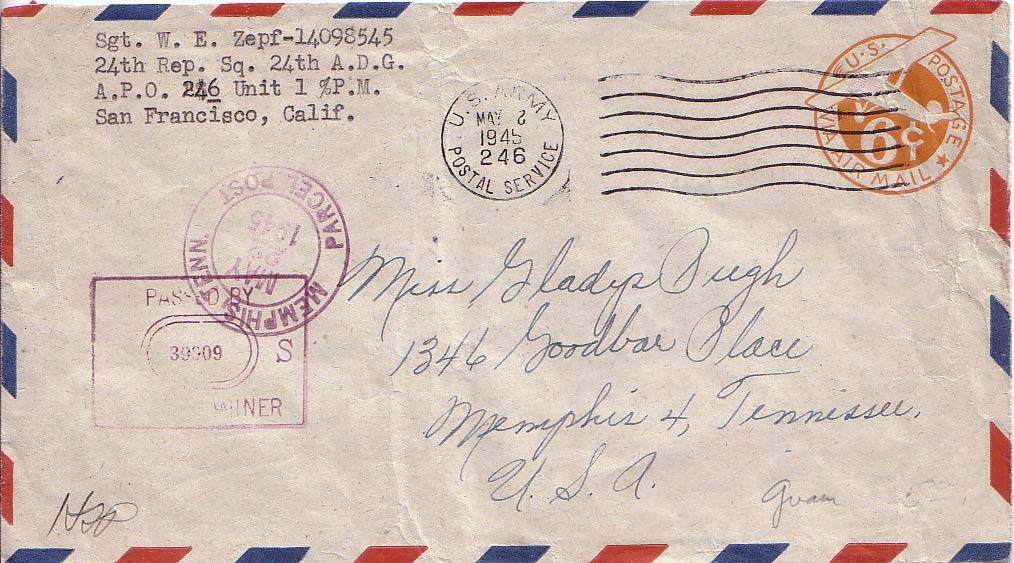 Sgt. W. E. Zepf-14098545
24th Rep. Sq. 24th A.D.G.
A.P.O. 246 Unit 1 %P.M.
San Francisco, Calif.
U.S. ARMY
MAY 2
1945
246
POSTAL SERVICE
U.S. POSTAGE
6¢
VIA AIR MAIL
MEMPHIS TENN.
PARCEL POST
MAY
1945
PASSED BY
S
MINER
Miss Gladys Pugh
1346 Goodbar Place
Memphis 4, Tennessee.
U. S. A.
Guam